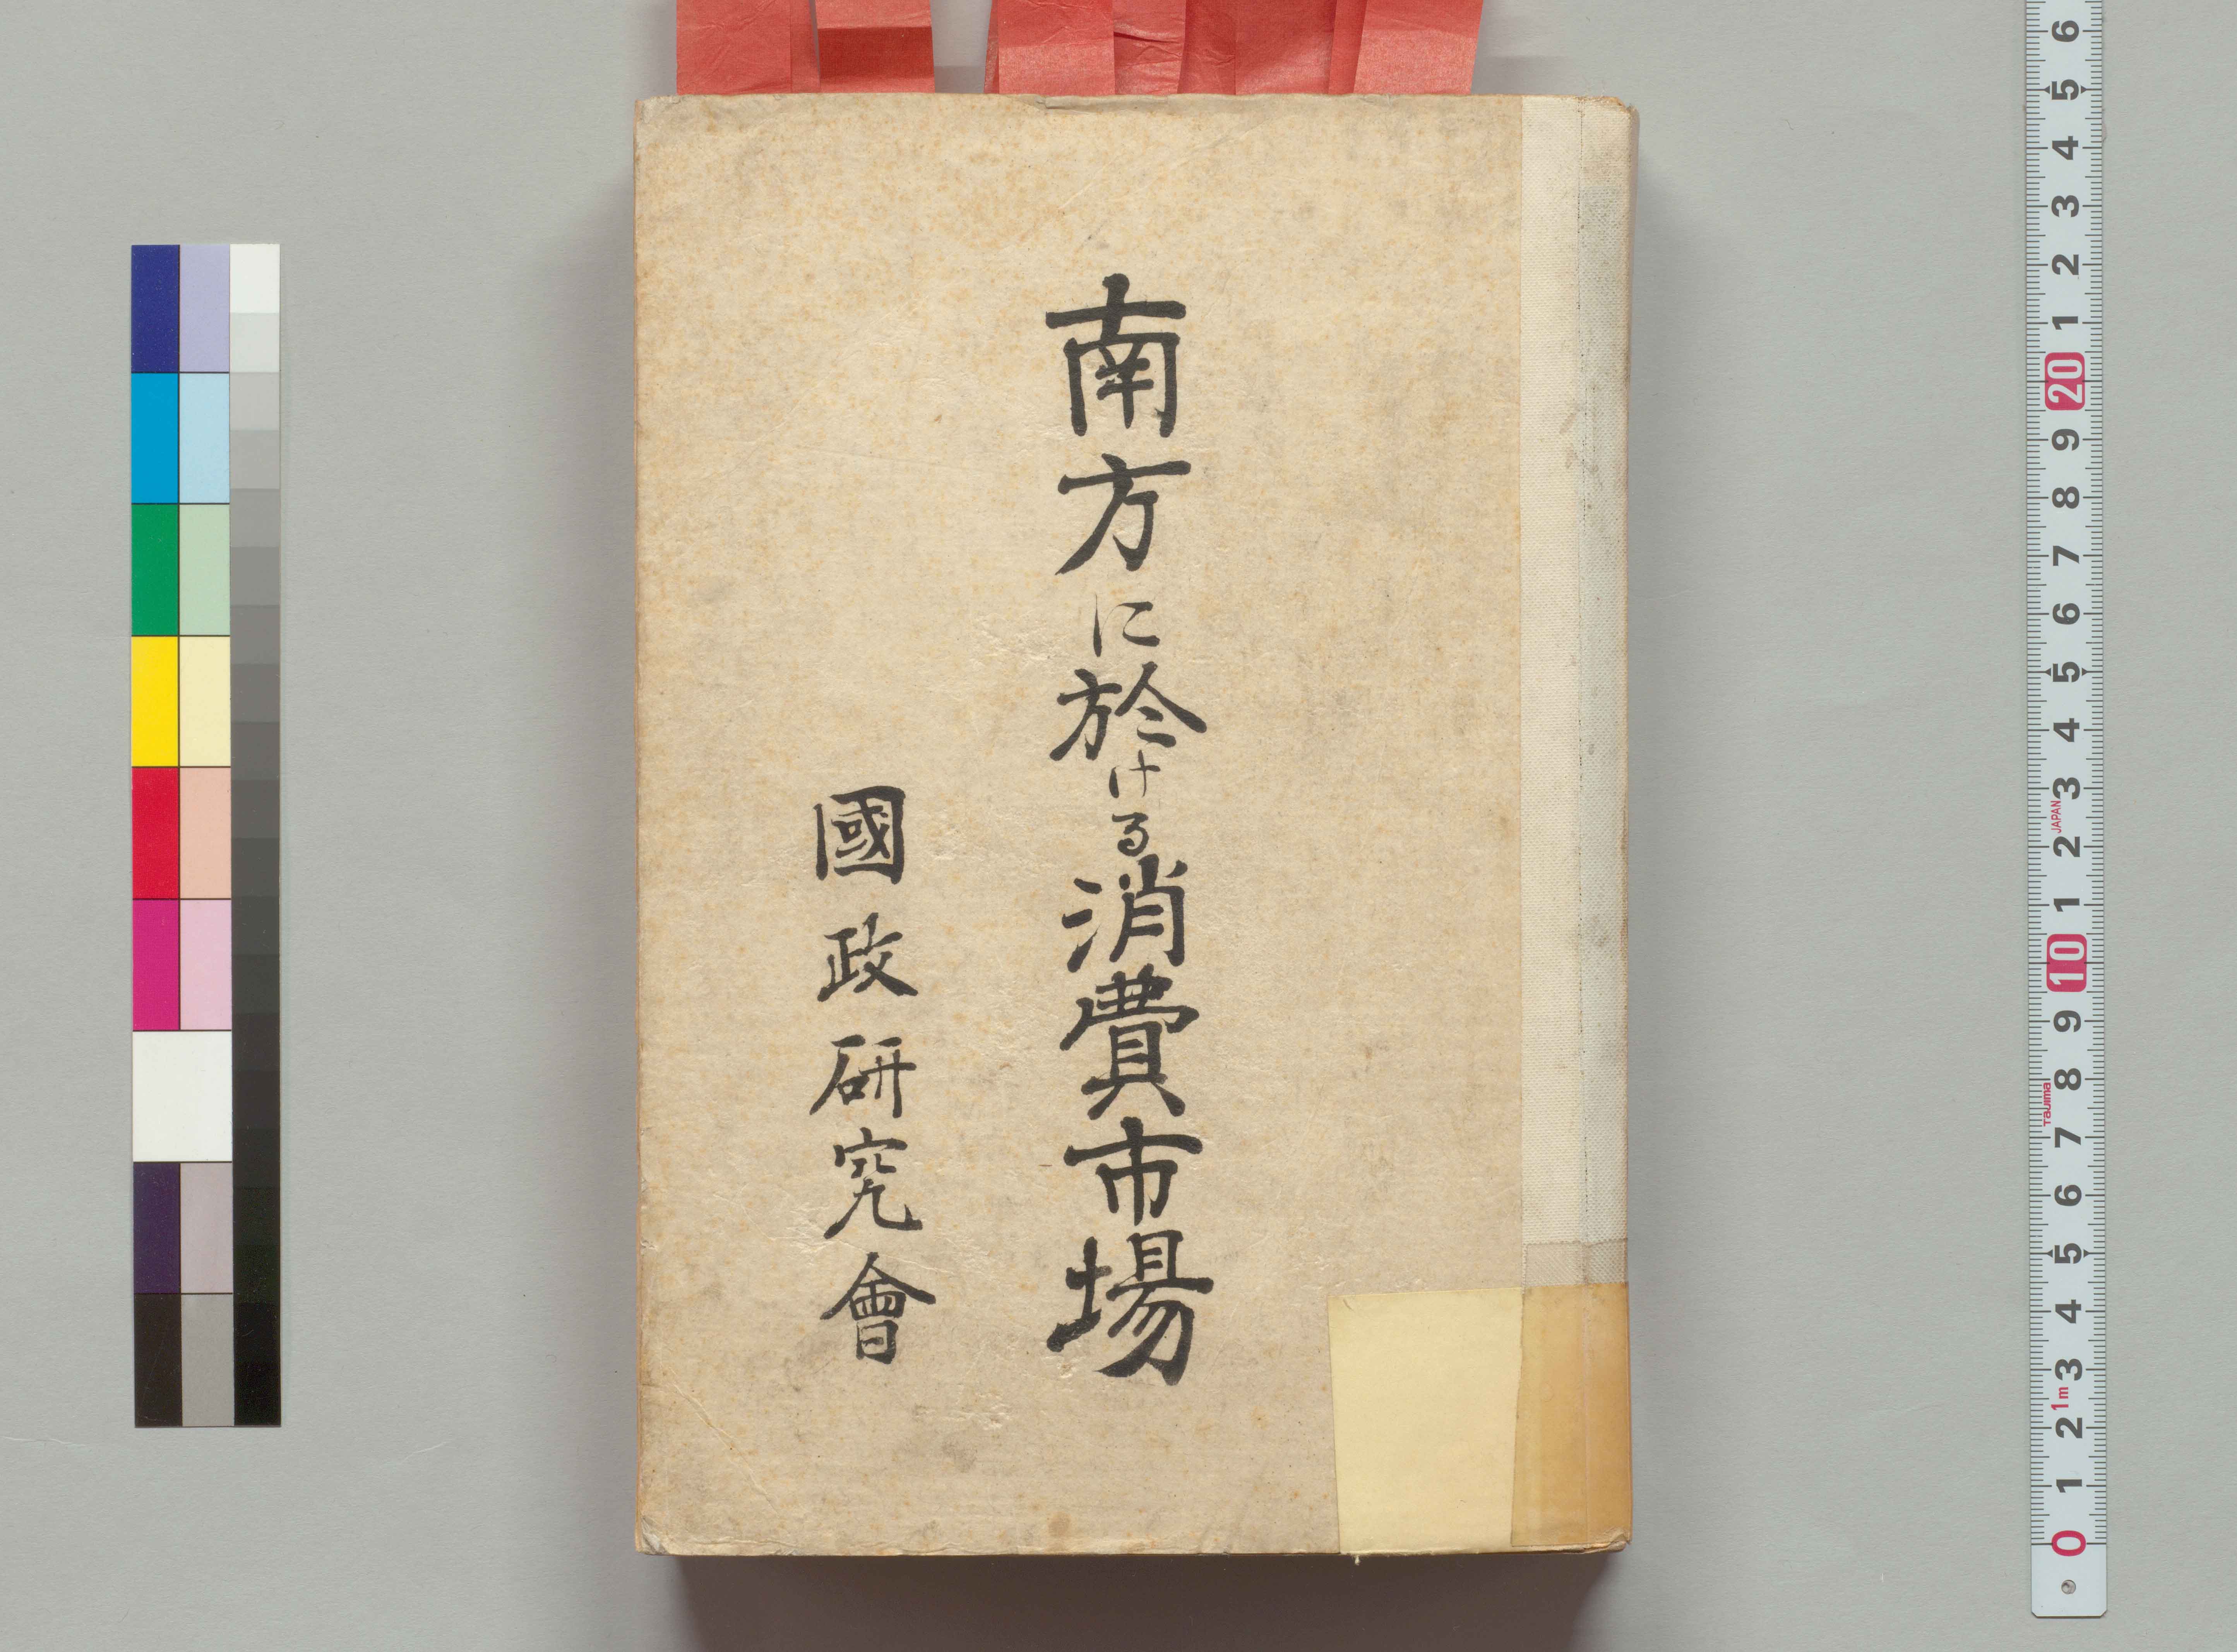 南方に於ける消費市場
國政研究會
6
5
4
3
2
1
20
9
8
7
6
5
4
3
JAPAN
2
1
10
9
8
Tajima
7
6
5
4
3
1m
2
1
0